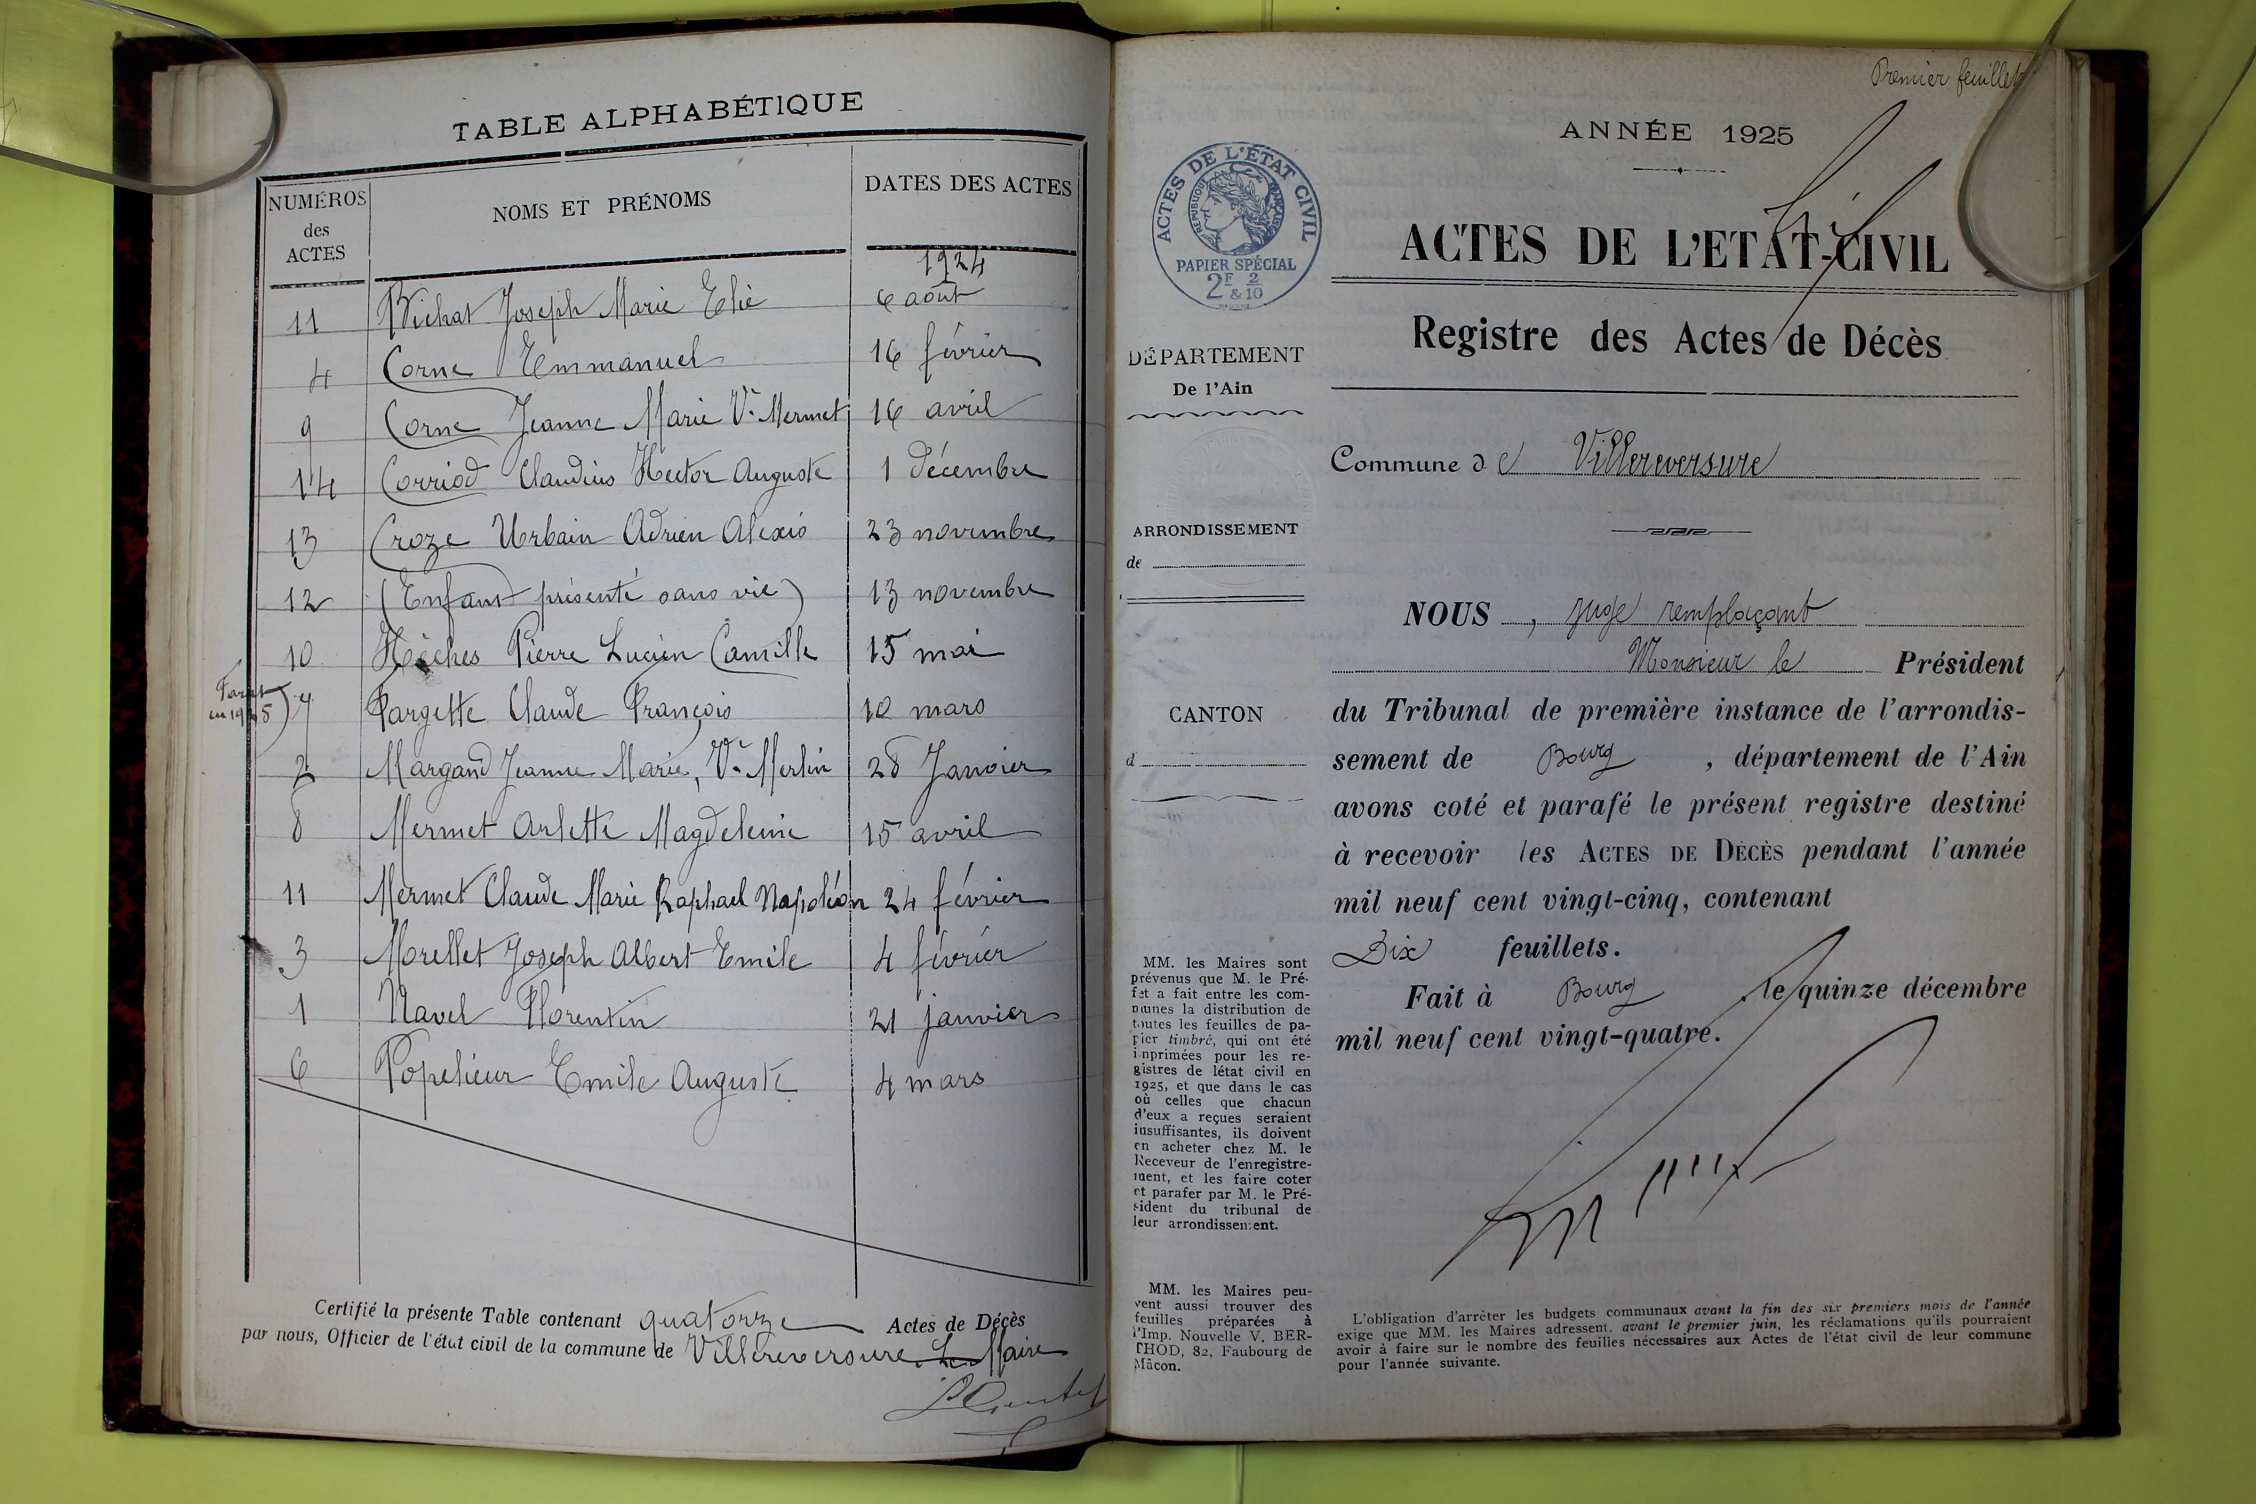 TABLE ALPHABÉTIQUE
NUMÉROS des ACTES
NOMS ET PRÉNOMS
DATES DES ACTES
1924
11 Bichat Joseph Marie Elie 6 août
4 Corne Emmanuel 16 février
9 Corne Jeanne Marie Ve Mermet 16 avril
14 Corriod Claudius Hector Auguste 1 décembre
13 Croze Urbain Adrien Alexis 23 novembre
12 (Enfant présenté sans vie) 13 novembre
10 Hèches Pierre Lucien Camille 15 mai
7 Fargette Claude François 10 mars
2 Margand Jeanne Marie, Ve Merlin 28 Janvier
8 Mermet Arlette Magdeleine 15 avril
11 Mermet Claude Marie Raphael Napoléon 24 février
3 Morellet Joseph Albert Emile 4 février
1 Navel Florentin 21 janvier
6 Popelieur Emile Auguste 4 mars
Certifié la présente Table contenant quatorze Actes de Décès
par nous, Officier de l'état civil de la commune de Villereversure. Le Maire
Premier feuillet
ANNÉE 1925
ACTES DE L'ÉTAT CIVIL
REPUBLIQUE FRANÇAISE
PAPIER SPÉCIAL
2F 2
& 10
ACTES DE L'ETAT-CIVIL
Registre des Actes de Décès
DÉPARTEMENT
De l'Ain
Commune de Villereversure
ARRONDISSEMENT
de
CANTON
d
NOUS, juge remplaçant
Monsieur le Président
du Tribunal de première instance de l'arrondis-
sement de Bourg, département de l'Ain
avons coté et parafé le présent registre destiné
à recevoir les ACTES DE DÉCÈS pendant l'année
mil neuf cent vingt-cinq, contenant
Dix feuillets.
Fait à Bourg, le quinze décembre
mil neuf cent vingt-quatre.
MM. les Maires sont
prévenus que M. le Pré-
fet a fait entre les com-
munes la distribution de
toutes les feuilles de pa-
pier timbré, qui ont été
imprimées pour les re-
gistres de létat civil en
1925, et que dans le cas
où celles que chacun
d'eux a reçues seraient
insuffisantes, ils doivent
en acheter chez M. le
Receveur de l'enregistre-
ment, et les faire coter
et parafer par M. le Pré-
sident du tribunal de
leur arrondissement.
MM. les Maires peu-
vent aussi trouver des
feuilles préparées à
l'Imp. Nouvelle V. BER-
THOD, 82, Faubourg de
Mâcon.
L'obligation d'arrêter les budgets communaux avant la fin des six premiers mois de l'année
exige que MM. les Maires adressent, avant le premier juin, les réclamations qu'ils pourraient
avoir à faire sur le nombre des feuilles nécessaires aux Actes de l'état civil de leur commune
pour l'année suivante.